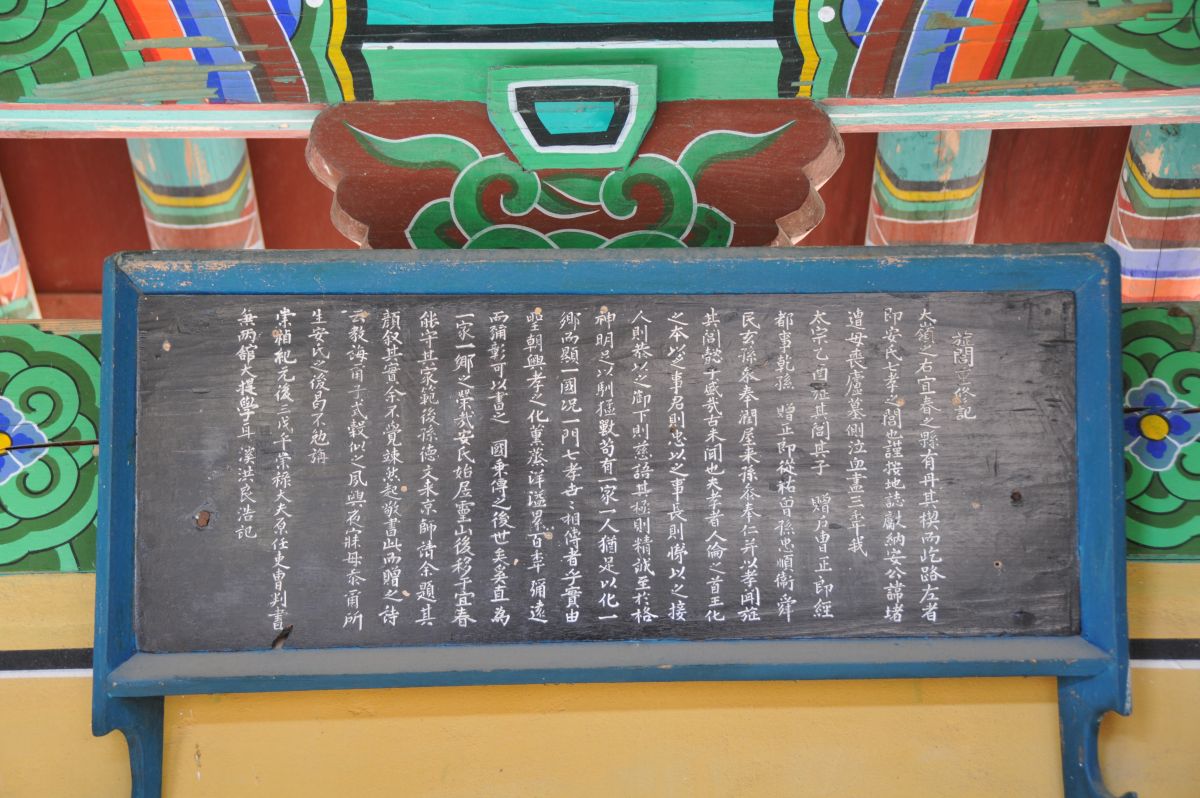 旌閭重修記
大嶺之右宜春之縣有丹其楔而屹路左者
即安氏七孝之閭也謹按地誌獻納安公諱堵
遭母喪廬墓側泣血盡三年我
太宗乙酉旌其閭其子 贈戶曹正郎經
都事乾孫 贈正郎從祐曾孫忠順衛舜
民玄孫參奉潤屋來孫參奉仁幷以孝聞旌
其閭懿乎盛哉古未聞也夫孝者人倫之首王化
之本以之事君則忠以之事長則悌以之接
人則恭以之御下則慈語其極則精誠至於格
神明足以馴極獸苟有一家一人猶足以化一
鄉而顯一國況一門七孝世〻相傳者乎實由
聖朝興孝之化薰蒸洋溢累百年彌遠
而彌彰可以書之 國乘傳之後世矣奚直爲
一家一鄉之榮哉安氏始居靈山後移于宜春
能守其家範後孫德文來京師請余題其
顔叙其實余不覺竦然起敬書此而贈之詩
云敎誨爾子式穀似之夙興夜寐毋忝爾所
生安氏之後曷不勉旃
崇禎紀元後三戊午崇祿大夫原任吏曹判書
兼兩館大提學耳溪洪良浩記